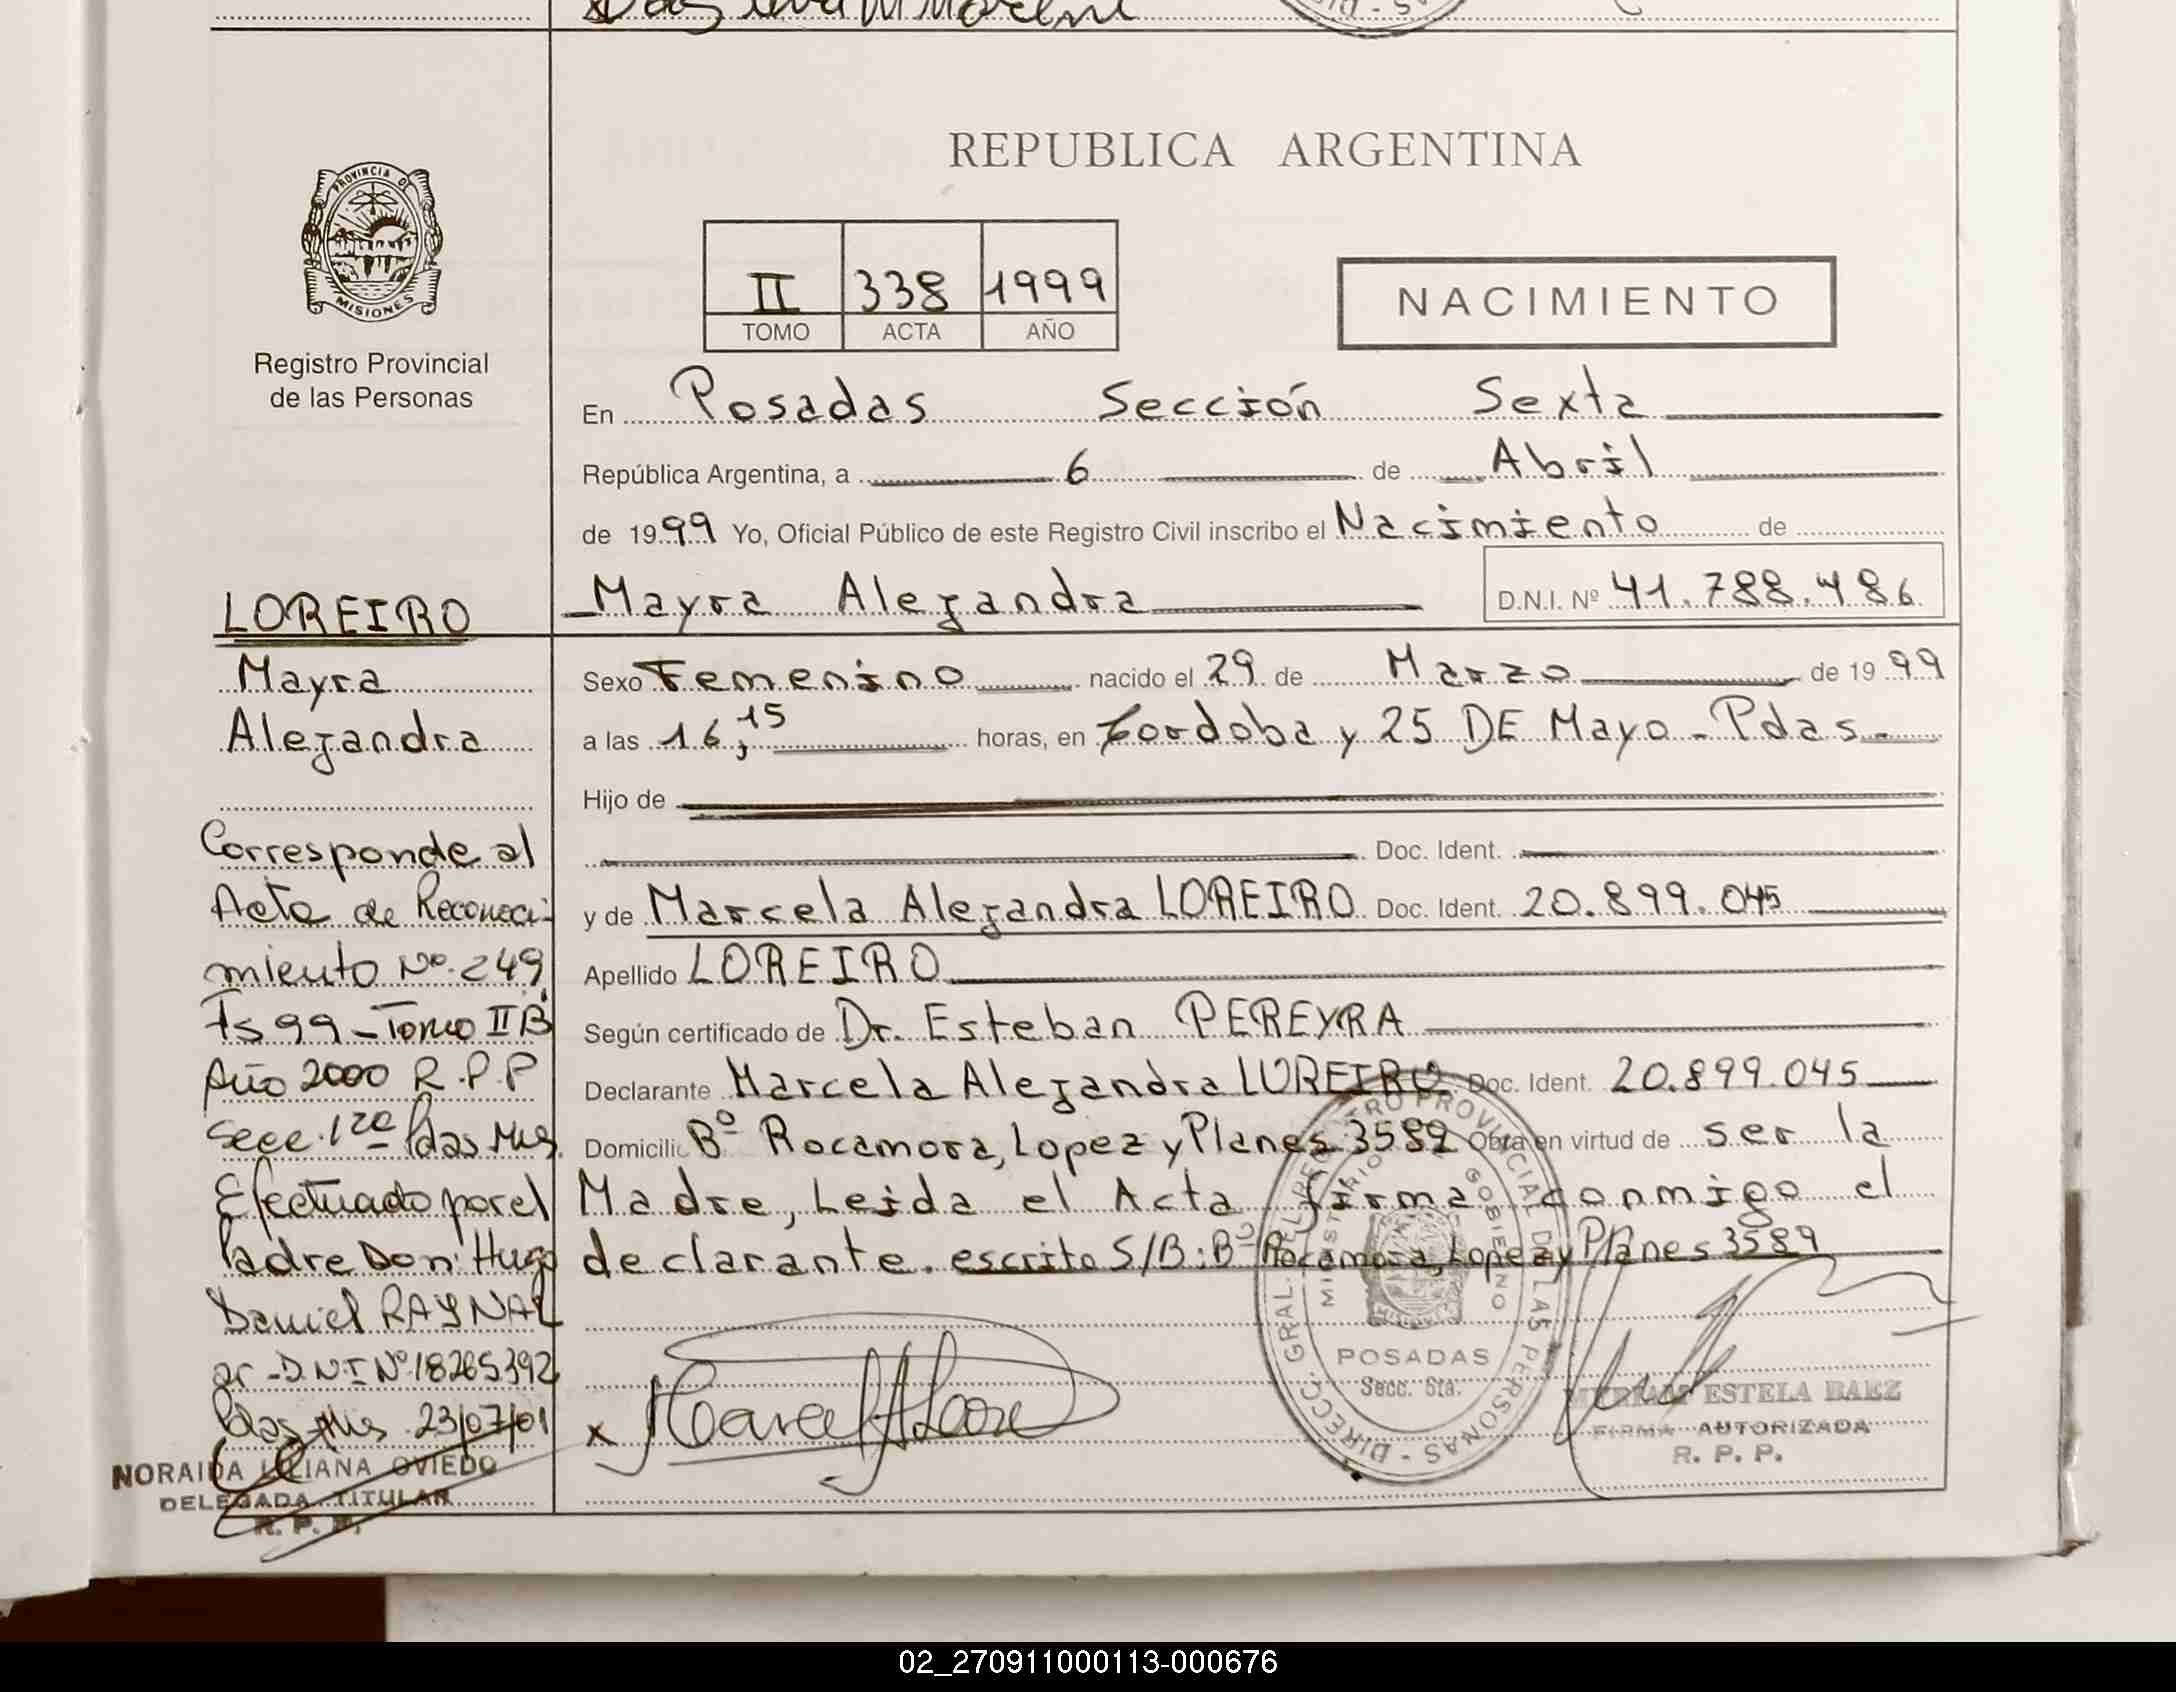 REPUBLICA ARGENTINA
PROVINCIA DE
MISIONES
Registro Provincial
de las Personas
II 338 1999
TOMO ACTA AÑO
NACIMIENTO
En Posadas Sección Sexta
República Argentina, a 6 de Abril
de 1999 Yo, Oficial Público de este Registro Civil inscribo el Nacimiento de
Mayra Alejandra D.N.I. Nº 41.788.486
Sexo Femenino nacido el 29 de Marzo de 1999
a las 16,15 horas, en Cordoba y 25 DE Mayo - Pdas -
Hijo de
Doc. Ident.
y de Marcela Alejandra LOREIRO Doc. Ident. 20.899.045
Apellido LOREIRO
Según certificado de Dr. Esteban PEREYRA
Declarante Marcela Alejandra LOREIRO Doc. Ident. 20.899.045
Domicilio Bº Rocamora, Lopez y Planes 3589 Obra en virtud de ser la
Madre, Leida el Acta firma conmigo el
declarante. escrito S/B: Bº Rocamora, Lopez y Planes 3589
LOREIRO
Mayra
Alejandra
Corresponde al
Acta de Reconoci-
miento Nº 249
Fs 99 - Tomo II B
Año 2000 R.P.P
Secc. 1ra Pdas Mns.
Efectuado por el
Padre Don: Hugo
Daniel RAYNAL
ar - D.N.I Nº 18265392
Pdas Mns 23/07/01
NORAIDA LILIANA OVIEDO
DELEGADA TITULAR
R. P. P.
DIRECC. GRAL. DEL REGISTRO PROVINCIAL DE LAS PERSONAS
MINISTERIO DE GOBIERNO
POSADAS
Secc. 6ta.
ESTELA BAEZ
FIRMA AUTORIZADA
R. P. P.
02_270911000113-000676